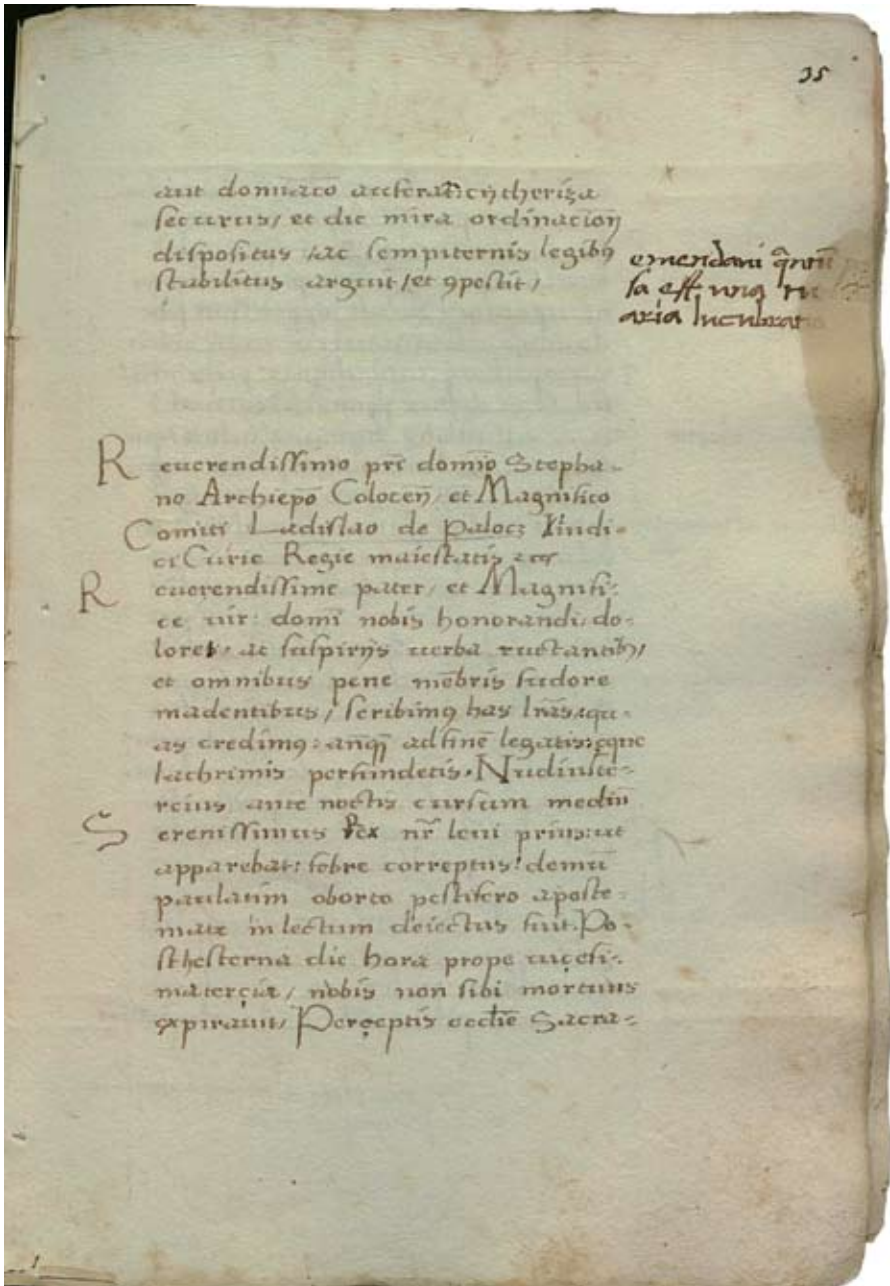 35
aut
securus, et dic mira ordinacioñ
dispositus, ac sempiternis legibꝯ
stabilitus arguit, et ꝯpescit,
emendaui
sa eff
aria lucubrat
Reuerendissimo prē domīo Stepha-
no Archiepō Coloceñ, et Magnifico
Comiti Ladislao de Palocz Iudi-
ci Curie Regie maiestatis
Reuerendissime pater, et Magnifi-
ce uir: domī nobis honorandi, do-
lore, ac suspirijs uerba ructantibꝯ,
et omnibus pene mēbris sudore
madentibus, scribimꝯ has lr̄as, qu-
as credimꝯ: anꝗꝫ ad finē legatis: eque
lachrimis perfundetis. Nudiuste-
rcius ante noctis cursum mediū
Serenissimus Rex nr̄ leui prius: ut
apparebat: febre correptus: demū
paulatim oborto pestifero aposte-
mate in lectum deiectus fuit. Po-
st hesterna die hora prope uigesi-
ma tercia, nobis non sibi mortuus
expirauit, Perceptis ecclīe Sacra-